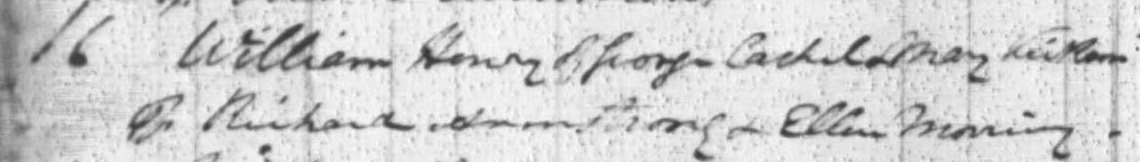 16 William Henry of George Cashel & Mary
Sp Richard Armstrong & Ellen Morning.